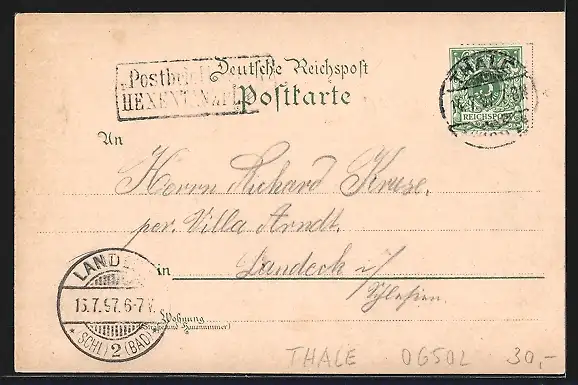 Deutsche Reichspost
Postkarte
"Postbrief
HEXENTANZ
THALE
REICHSPOST
An
Herrn Richard Kruse.
per. Villa Arndt.
in Landeck i/
Schlesien.
LANDE
15.7.97.6-7 V.
* SCHL) 2 (BAD)
Wohnung
(Straße und Hausnummer)
THALE 06502 30,-